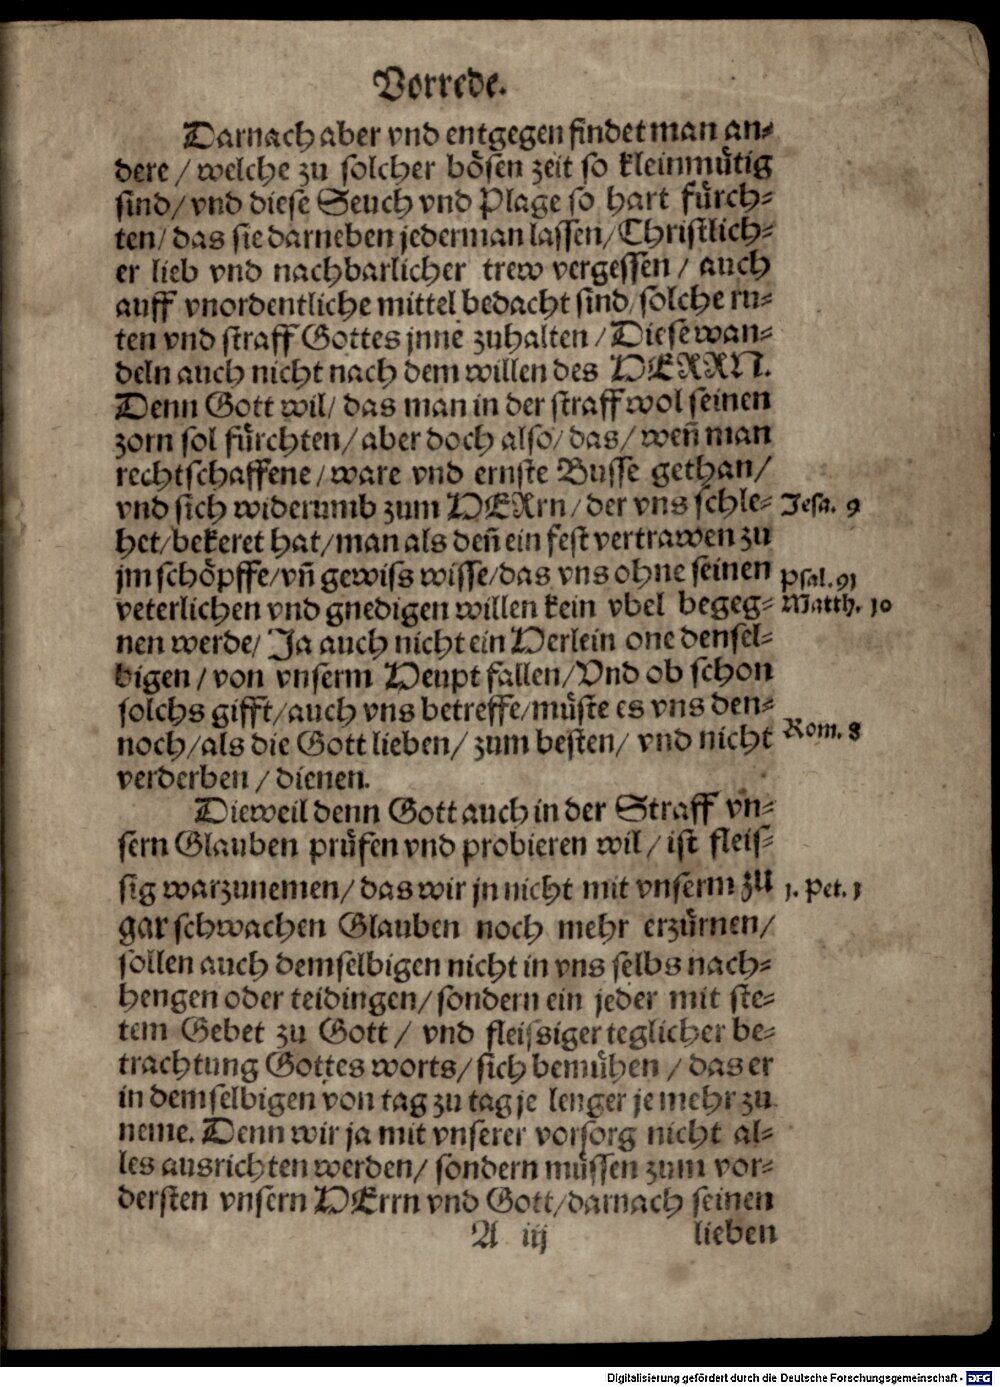 Vorrede.
Darnach aber vnd entgegen findet man an⸗
dere / welche zu solcher boͤsen zeit so kleinmuͤtig
sind / vnd diese Seuch vnd Plage so hart fuͤrch⸗
ten / das sie darneben jederman lassen / Christlich⸗
er lieb vnd nachbarlicher trew vergessen / auch
auff vnordentliche mittel bedacht sind / solche ru⸗
ten vnd straff Gottes jnne zuhalten / Diese wan⸗
deln auch nicht nach dem willen des HERRN.
Denn Gott wil / das man in der straff wol seinen
zorn sol fuͤrchten / aber doch also / das / weñ man
rechtschaffene / ware vnd ernste Busse gethan /
vnd sich widerumb zum HERrn / der vns schle⸗ Jesa. 9
het / bekeret hat / man als deñ ein fest vertrawen zu
jm schoͤpffe / vñ gewiss wisse / das vns ohne seinen Psal. 91
veterlichen vnd gnedigen willen kein vbel begeg⸗ Matth. 10
nen werde / Ja auch nicht ein Herlein one densel⸗
bigen / von vnserm Heupt fallen / Vnd ob schon
solchs gifft / auch vns betreffe / muͤste es vns den⸗
noch / als die Gott lieben / zum besten / vnd nicht Rom. 8
verderben / dienen.
Dieweil denn Gott auch in der Straff vn⸗
sern Glauben pruͤfen vnd probieren wil / ist fleis⸗
sig warzunemen / das wir jn nicht mit vnserm zu 1. Pet. 1
gar schwachen Glauben noch mehr erzuͤrnen /
sollen auch demselbigen nicht in vns selbs nach⸗
hengen oder teidingen / sondern ein jeder mit ste⸗
tem Gebet zu Gott / vnd fleissiger teglicher be⸗
trachtung Gottes worts / sich bemuͤhen / das er
in demselbigen von tag zu tag je lenger je mehr zu
neme. Denn wir ja mit vnserer vorsorg nicht al⸗
les ausrichten werden / sondern muͤssen zum vor⸗
dersten vnsern HErrn vnd Gott / darnach seinen
A iij lieben
Digitalisierung gefördert durch die Deutsche Forschungsgemeinschaft - DFG